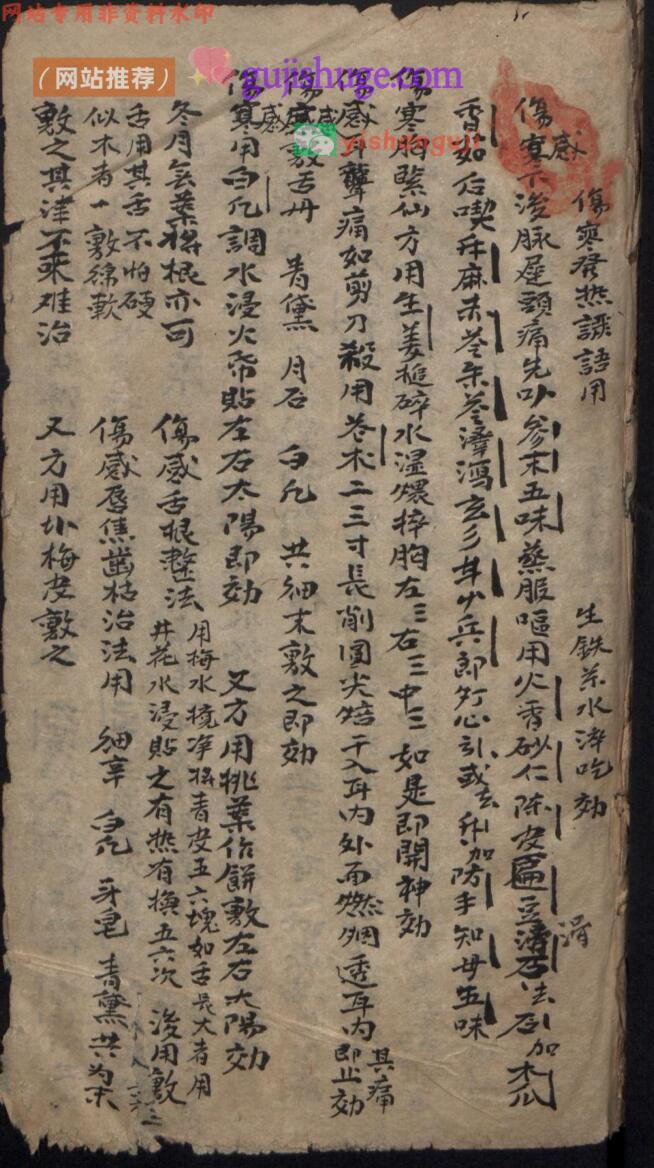 网站专用非资料水印
（网站推荐）
gujishuge.com
yishanguji
傷寒發热譫語用 生鉄茶水淬吃効
傷寒下後脉遅頭痛先以參末五味蒸服嘔用火香砂仁陳皮匾豆滑石法夏加木瓜
感
滑
香茹后喫升麻赤苓朱苓澤瀉玄參甘少兵郎灯心引或去升加防手知母五味
傷寒胸緊仙方用生姜搥碎水湿煨捽胸左三右三中三如是即開神効
傷感耳聾痛如剪刀殺用卷木二三寸長削圓尖焙干入耳内外而燃烟透耳内其痛即止効
傷寒敷舌丹 青黛 月石 白凡 共細末敷之即効
感
傷寒用白凡調水浸火帋貼左右太陽即効 又方用桃葉作餅敷左右太陽効
感
冬月無葉將根亦可 傷感舌根整法 用梅水撹净將青皮五六塊如舌長大者用
井花水浸貼之有热有換五六次 後用敷
舌用其舌不怕硬
似木者一敷綿軟
傷感唇焦齒枯治法用 細辛 白凡 牙皂 青黛共为末
敷之其津不来难治 又方用小梅皮敷之